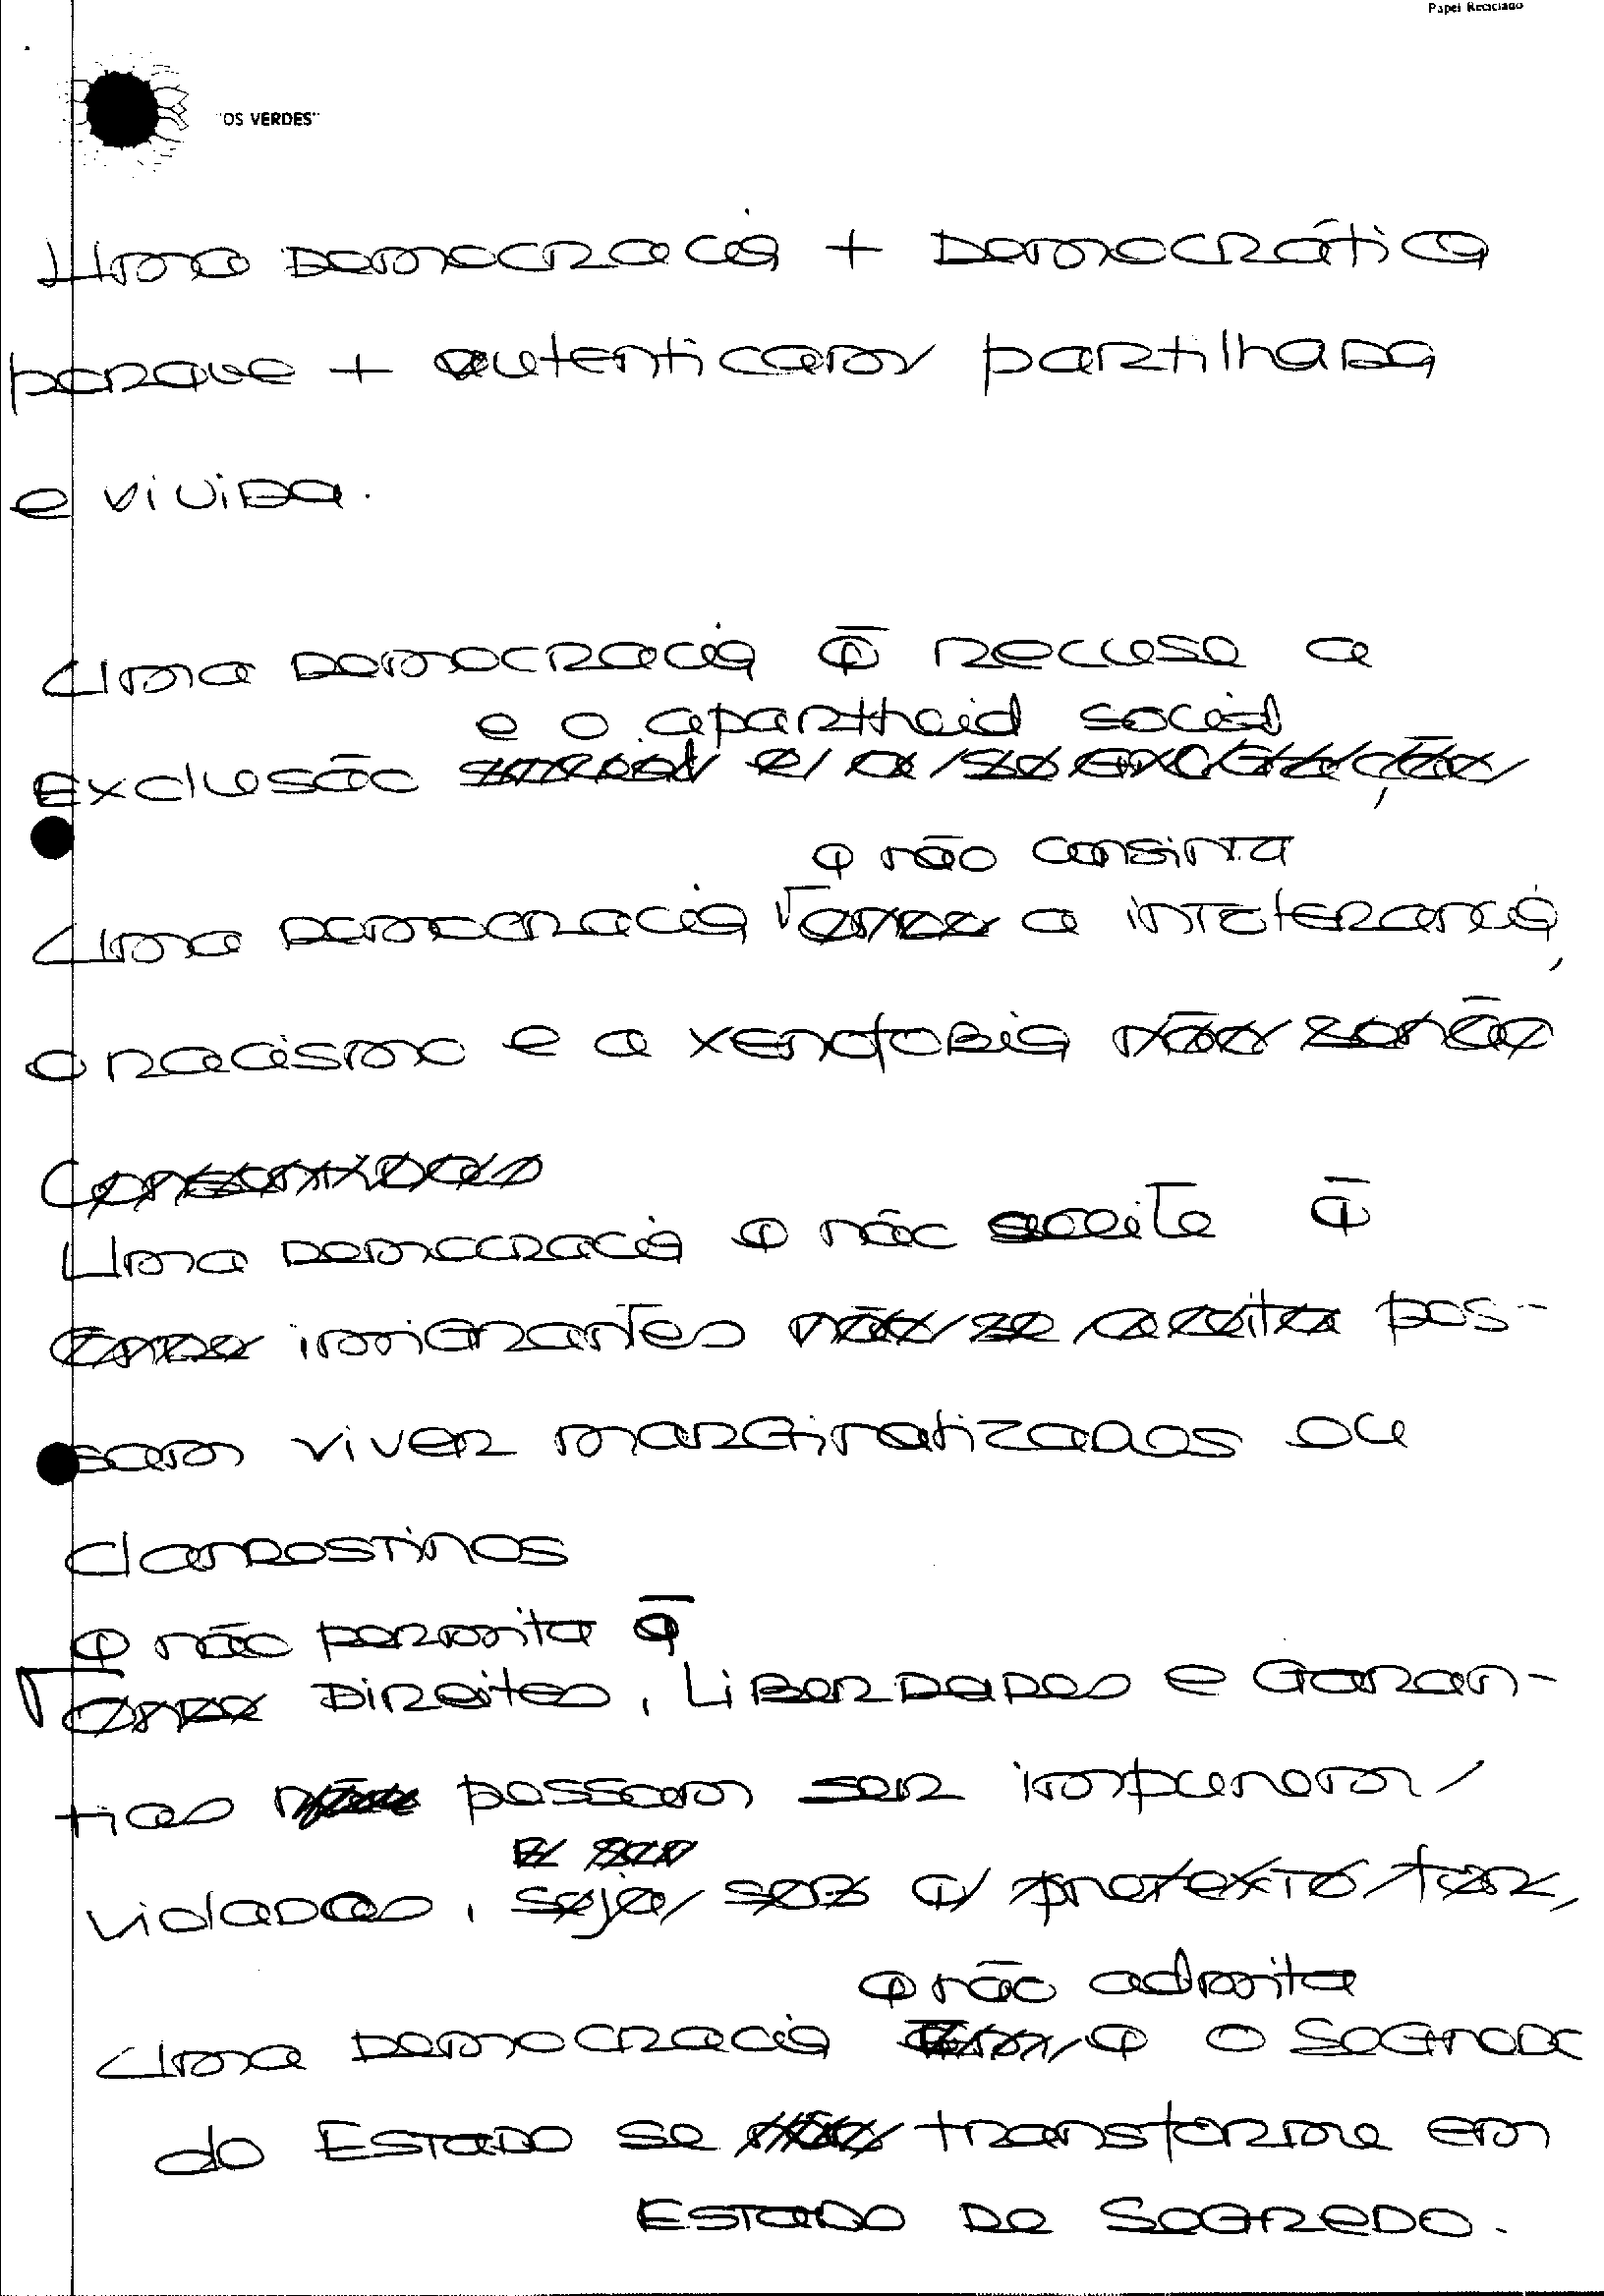 Papel Reciclado
"OS VERDES"
Uma Democracia + Democrática
porque + autenticam/ partilhada
e vivida.
Uma Democracia q̄ recuse a
e o apartheid social
exclusão social e a segregação,
q não consinta
Uma Democracia onde a intolerancia,
o racismo e a xenofobia não serão
consentidos
Uma Democracia q não aceite q̄
onde imigrantes não se aceita pos-
sam viver marginalizados ou
clandestinos
q não permita q̄
onde Direitos, Liberdades e Garan-
tias não possam ser impunem/
violados, seja sob q/ pretexto for,
q não admita
Uma Democracia em q o Segredo
do Estado se não transforme em
Estado de Segredo.